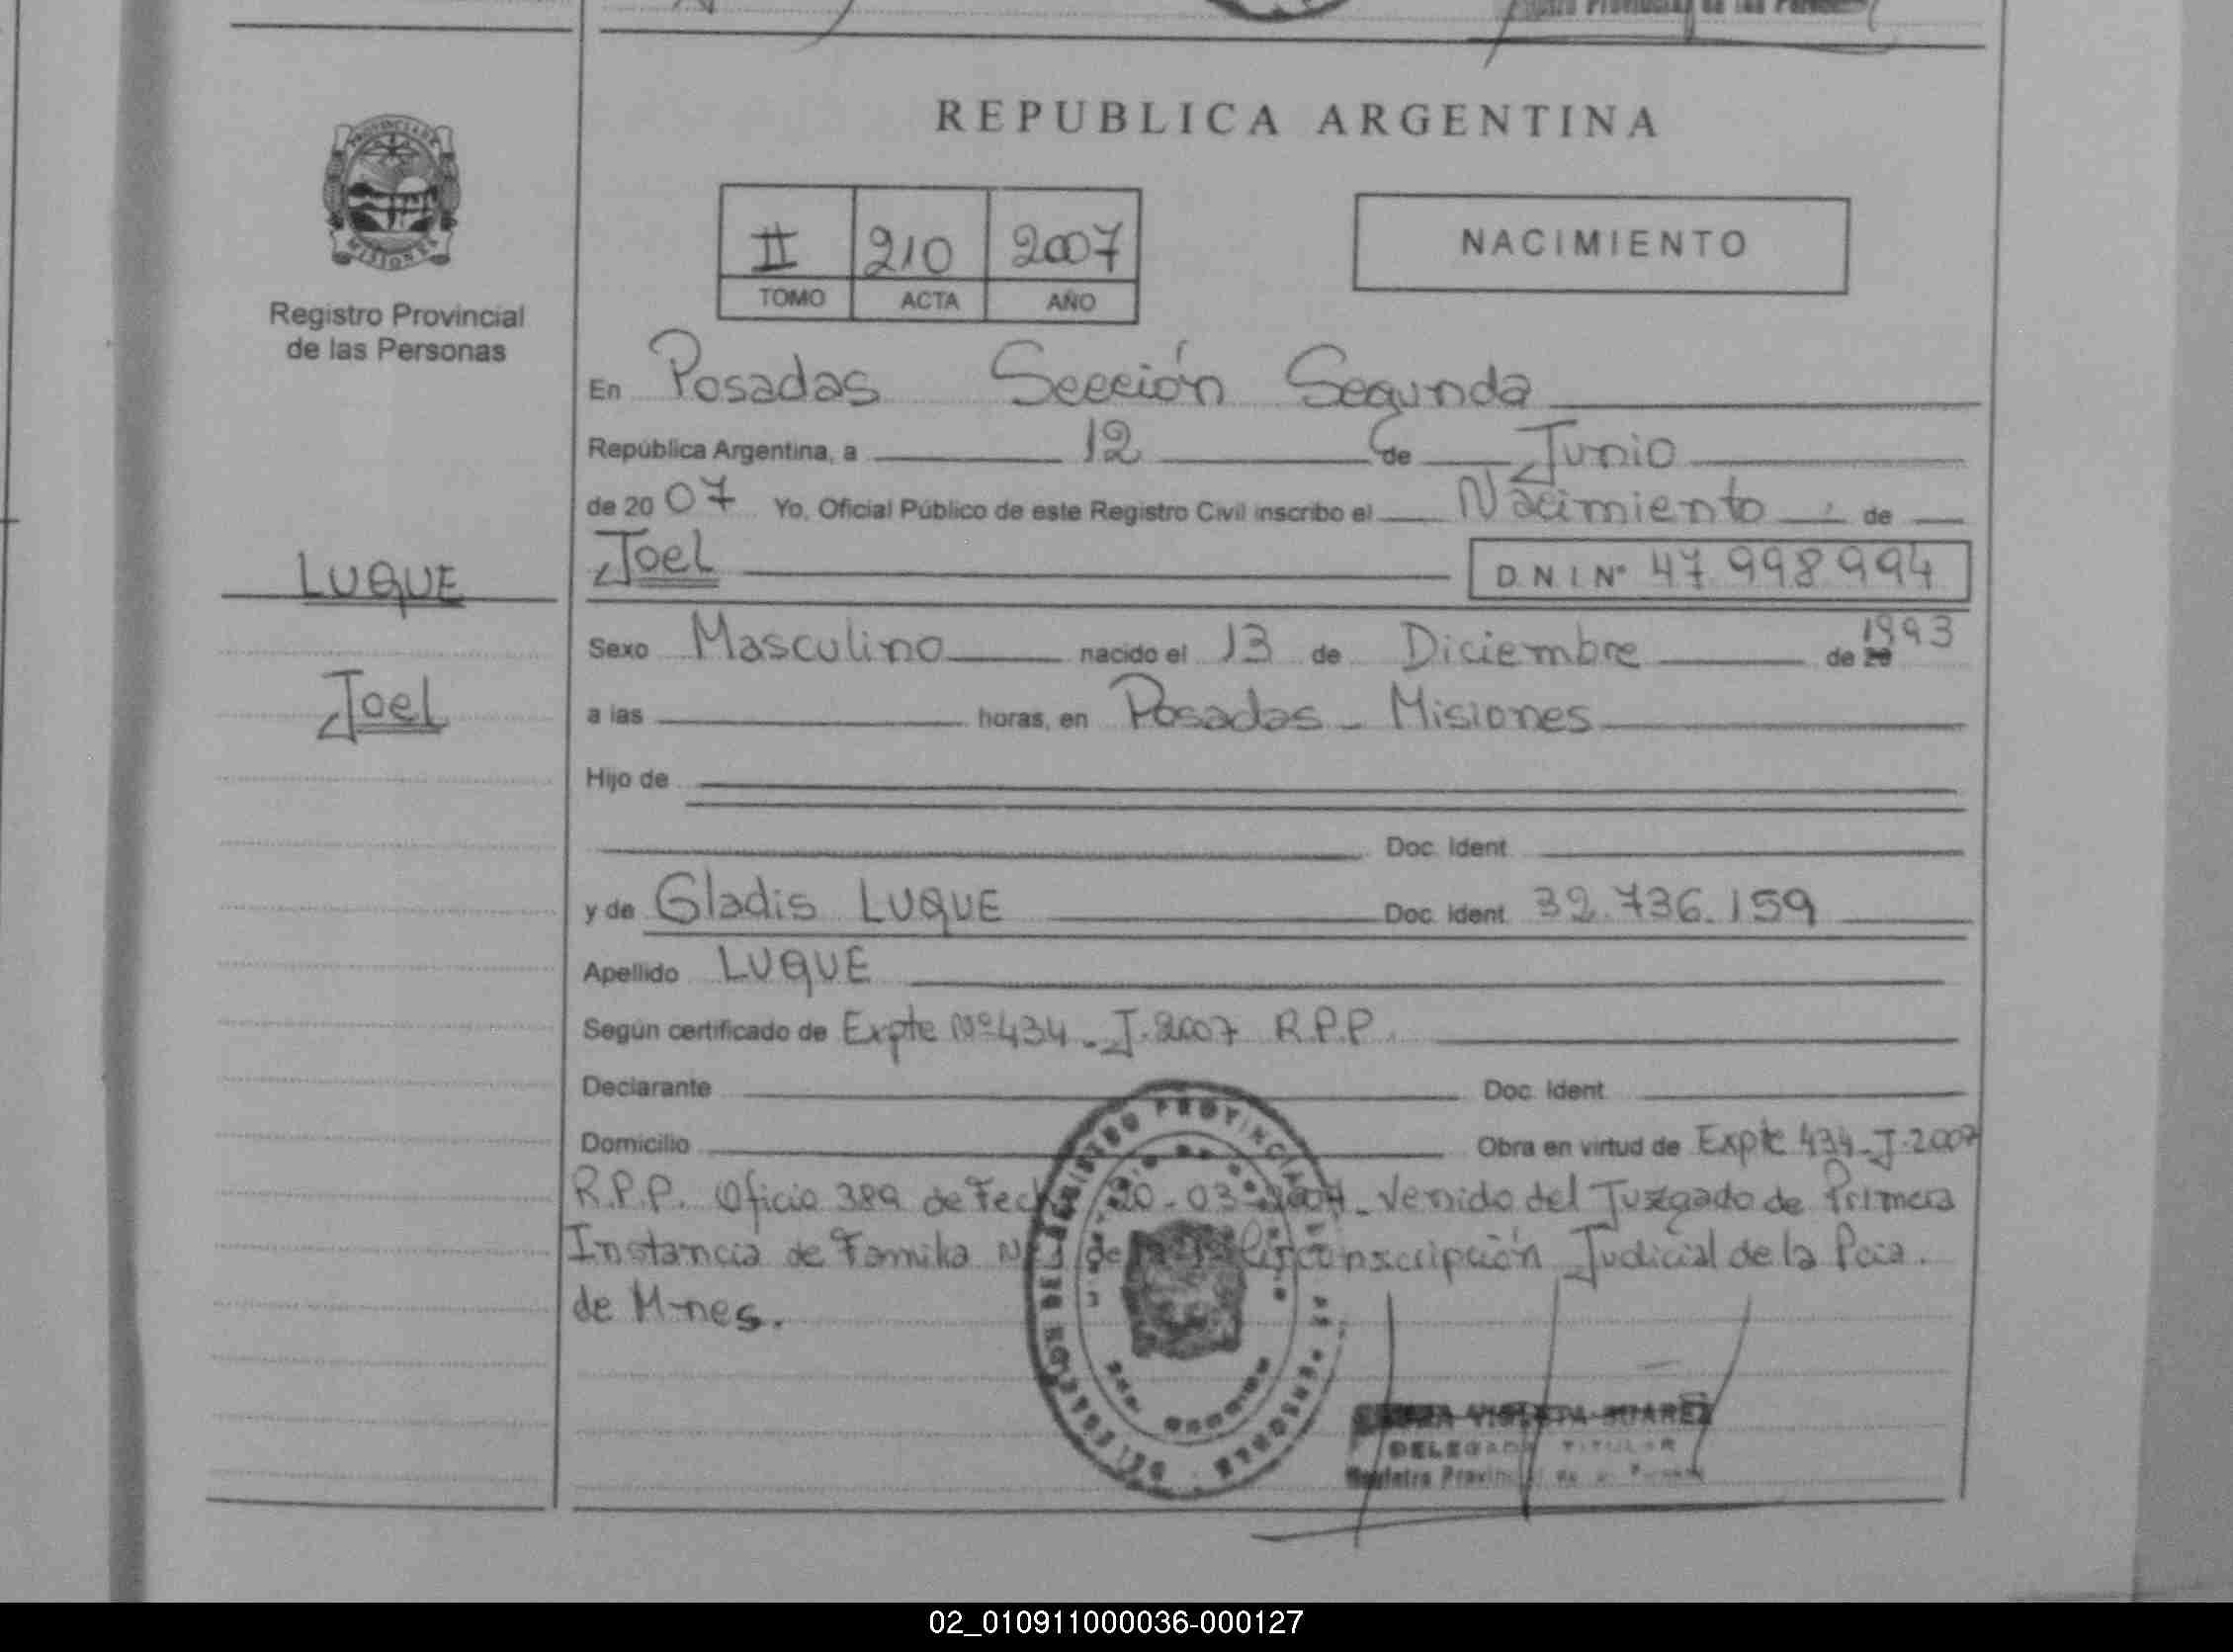 Registro Provincial de las Personas
REPUBLICA ARGENTINA
PROVINCIA DE
MISIONES
II 210 2007
TOMO ACTA AÑO
NACIMIENTO
Registro Provincial
de las Personas
En Posadas Sección Segunda
República Argentina, a 12 de Junio
de 20 07 Yo, Oficial Público de este Registro Civil inscribo el Nacimiento de
LUQUE
Joel
D N I Nº 47.998994
Sexo Masculino nacido el 13 de Diciembre de 1993
Joel
a las horas, en Posadas - Misiones
Hijo de
Doc. Ident.
y de Gladis LUQUE Doc. Ident. 32.736.159
Apellido LUQUE
Según certificado de Expte Nº 434 - J. 2007 R.P.P.
Declarante Doc. Ident.
Domicilio Obra en virtud de Expte 434-J-2007
R.P.P. Oficio 389 de 20-03- Venido del Juzgado de Primera
Instancia de Familia de Circunscripción Judicial de la Pcia.
de M-nes.
VIOLETA SUAREZ
DELEGADA TITULAR
Registro Provincial
02_010911000036-000127